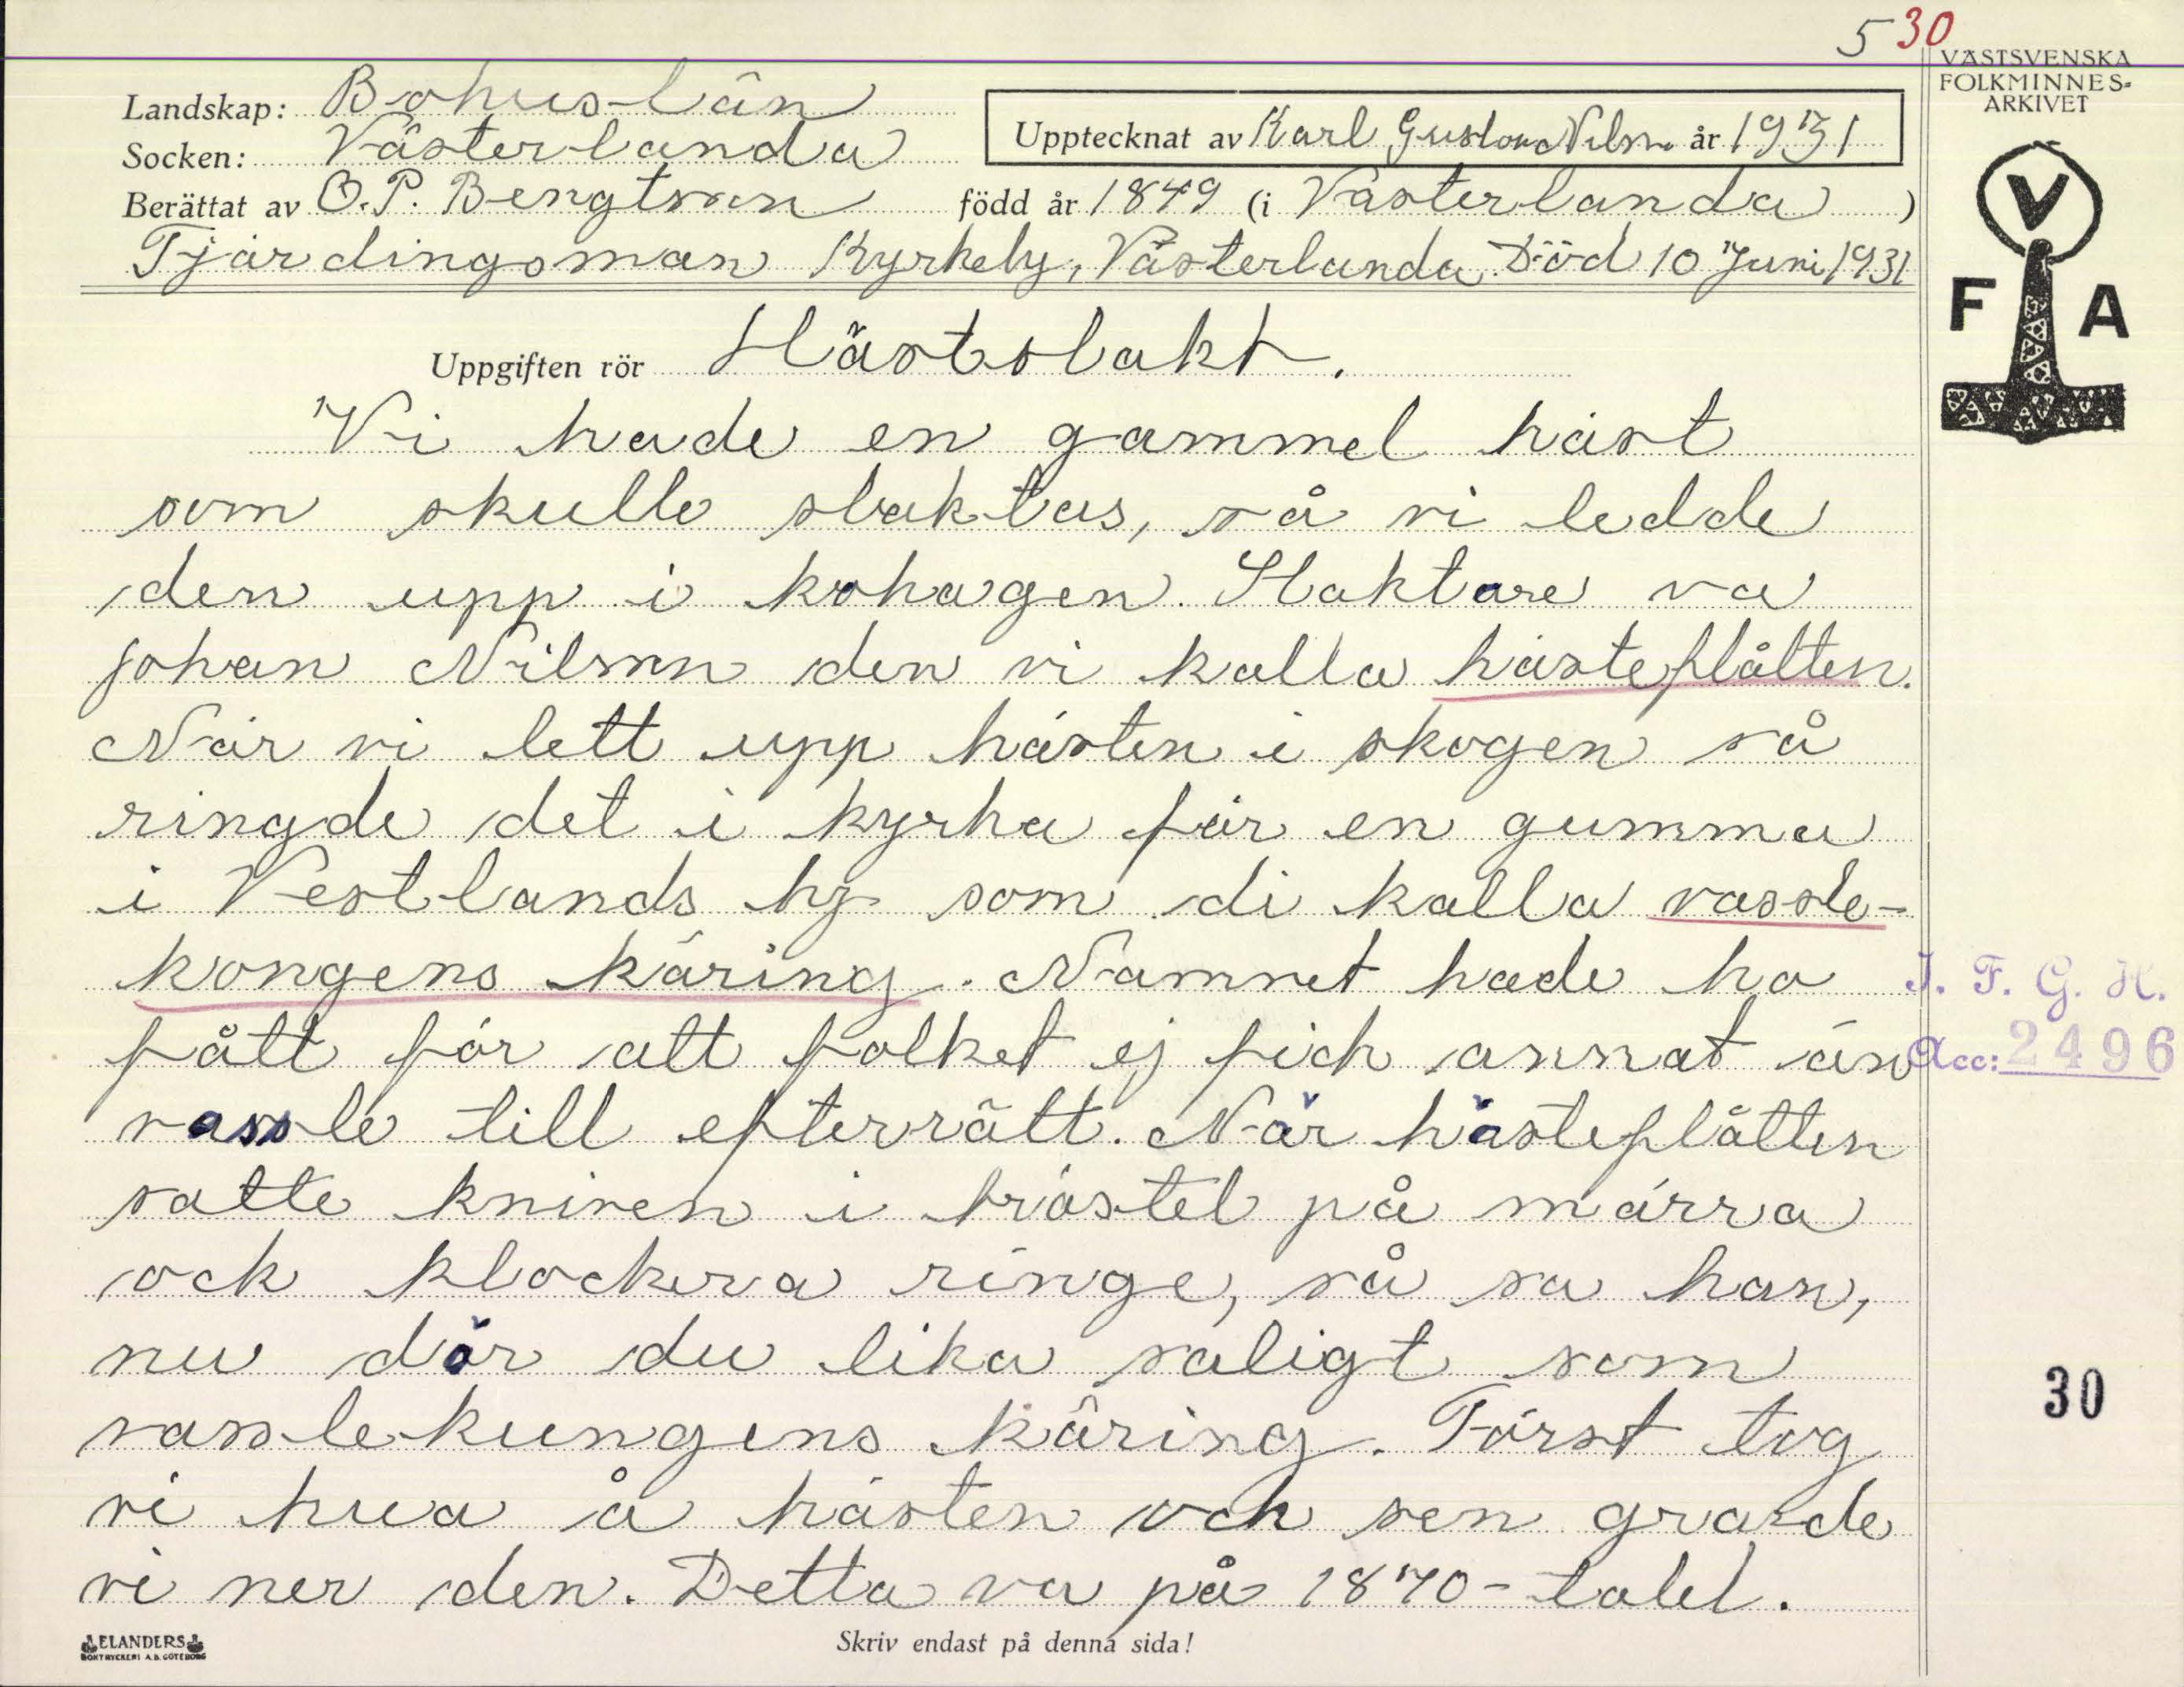 530
VÄSTSVENSKA
FOLKMINNES-
ARKIVET
Landskap: Bohuslän
Upptecknat av Karl Gustav Nilsn. år 1931
Socken: Västerlanda
Berättat av O.P. Bengtsson född år 1849 (i Västerlanda )
Fjärdingsman Kyrkeby, Västerlanda Död 10 Juni 1931
V
F A
Uppgiften rör Hästslakt.
Vi hade en gammel häst
som skulle slaktas, så vi ledde
den upp i kohagen. Slaktare va
Johan Nilsson den vi kalla hästeflåtten.
När vi lett upp hästen i skogen så
ringde det i kyrka för en gumma
i Vestlands by som di kalla vassle-
kongens käring. Namnet hade ho
fått för att folket ej fick annat än
vassle till efterrätt. När hästeflåtten
satte kniven i bröstet på märra
ock klockera ringe, så sa han,
nu dör du lika saligt som
vasslekungens käring. Först tog
vi hua å hästen och sen gravde
vi ner den. Detta va på 1870-talet.
I. F. G. H.
Acc: 2496
30
ELANDERS
BOKTRYCKERI A.B. GÖTEBORG
Skriv endast på denna sida!